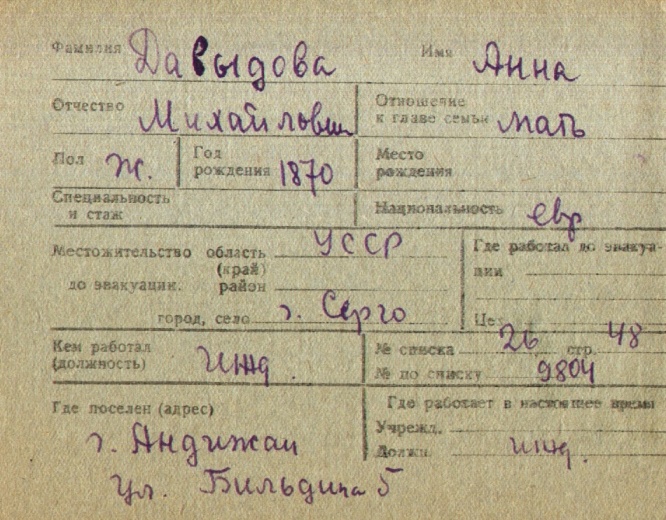 Фамилия Давыдова Имя Анна
Отчество Михайловна Отношение к главе семьи мать
Пол Ж. Год рождения 1870 Место рождения
Специальность и стаж Национальность евр
Местожительство область УССР Где работал до эвакуа-
(край) ции
до эвакуации. район
город, село г. Серго Цех
Кем работал № списка 26 стр. 48
(должность) ижд. № по списку 9804
Где поселен (адрес) Где работает в настоящее время
г. Андижан Учрежд.
Должн. ижд.
ул. 5